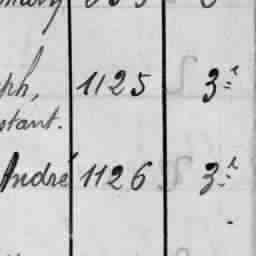 ph, 1125 3e
stant.
André 1126 3e